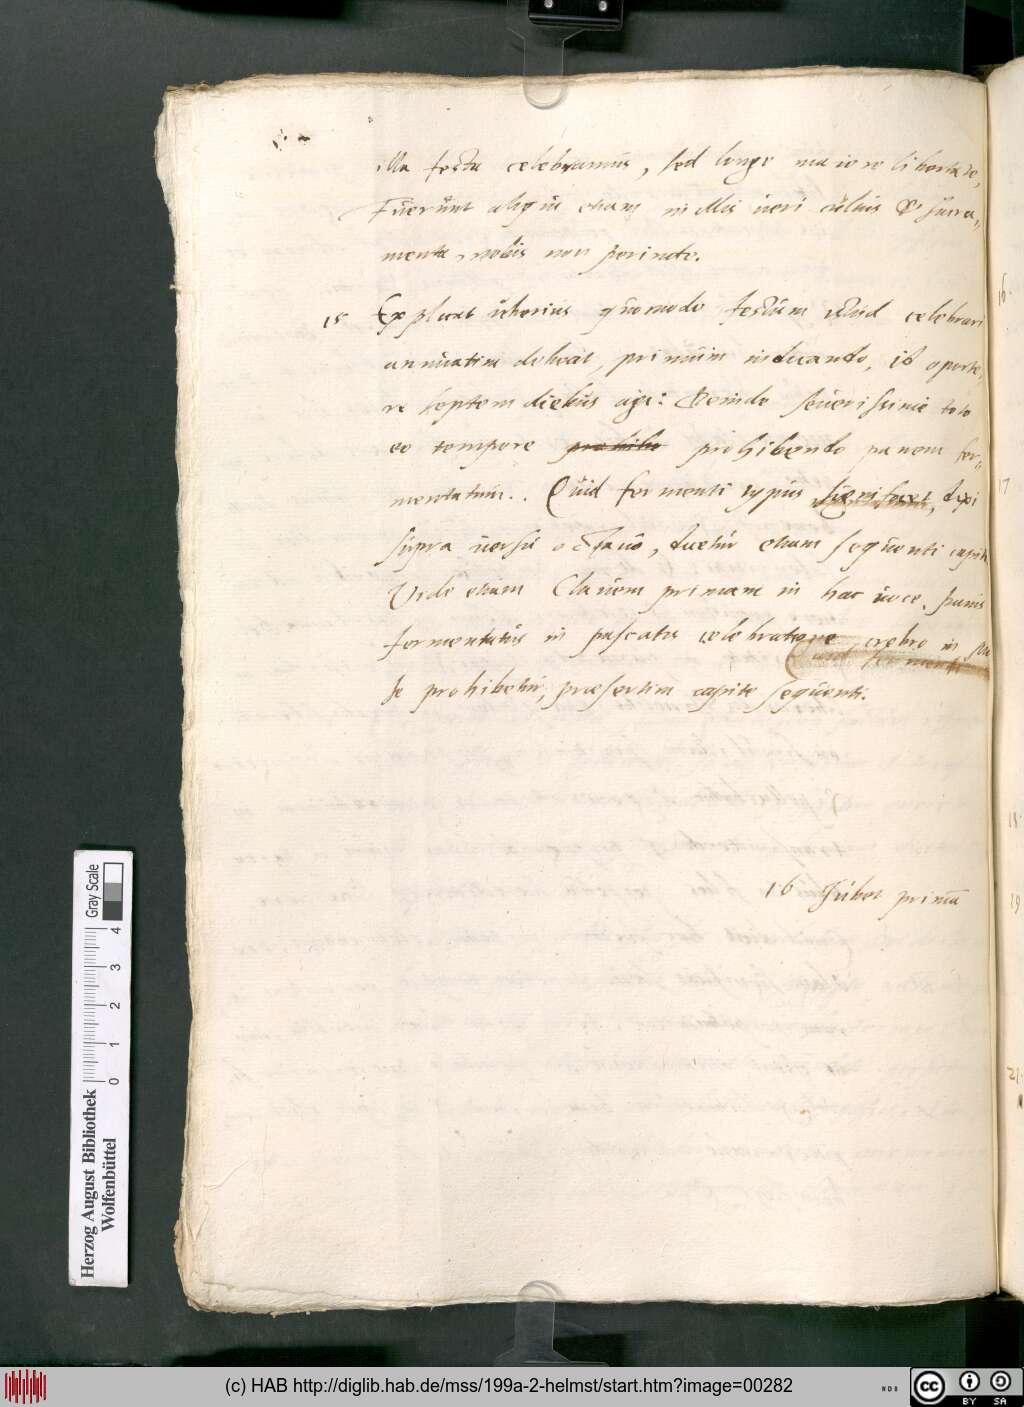 illa festa celebramus, sed longe maiore libertate,
Fuerunt aliqui etiam in illis veri cultus & sacra-
menta, nobis non perinde.
15 Explicat ulterius quomodo festum istud celebrari
annuatim debeat, primum indicando, id oporte-
re septem diebus agi: Deinde severissime toto
eo tempore prohibe prohibendo panem fer-
mentatum. Quid fermenti typus significet, dixi
supra versu octavo, dicetur etiam sequenti capite
Vide etiam Clavem primam in hac voce. panis
fermentatus in pascatis celebratione crebro in
se prohibetur, præsertim capite sequenti.
16 Jubet primū
Gray Scale
0 1 2 3 4
Herzog August Bibliothek
Wolfenbüttel
16
17
18
19
21
(c) HAB http://diglib.hab.de/mss/199a-2-helmst/start.htm?image=00282
cc BY SA